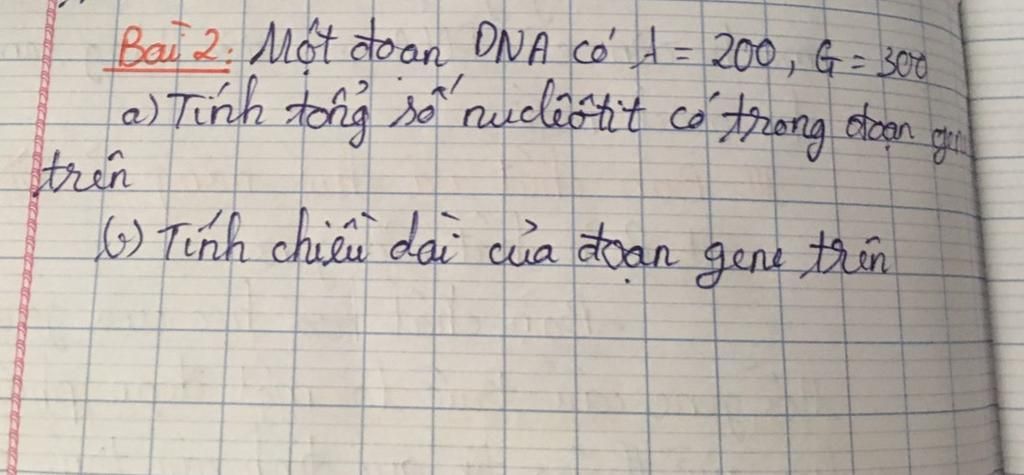 Bài 2: Một đoạn DNA có A = 200, G = 300
a) Tính tổng số nuclêôtit có trong đoạn
trên
b) Tính chiều dài của đoạn gene trên